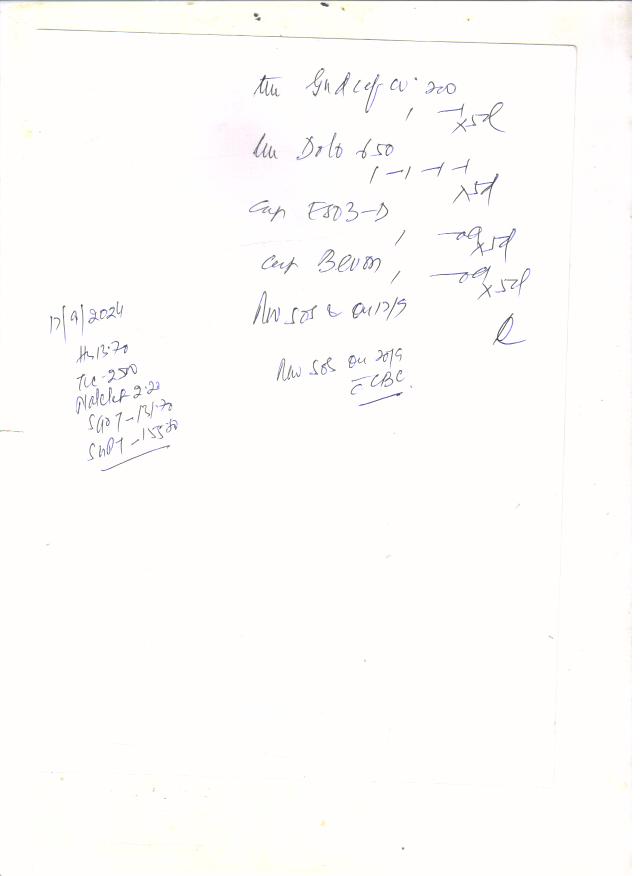 Tab Gudcef CV 200
1 — 1 x5d
Tab Dolo 650
1 — 1 — 1 — 1
x5d
Cap ESOZ-D
1 — OD x5d
Cap Bevon
1 — OD x5d
Rev SOS & on 17/9
Rev SOS on 20/9
c̄ CBC
17/9/2024
Hb 13.70
TLC - 2500
Platelet 2.20
SGOT - 131.70
SGPT - 155.70